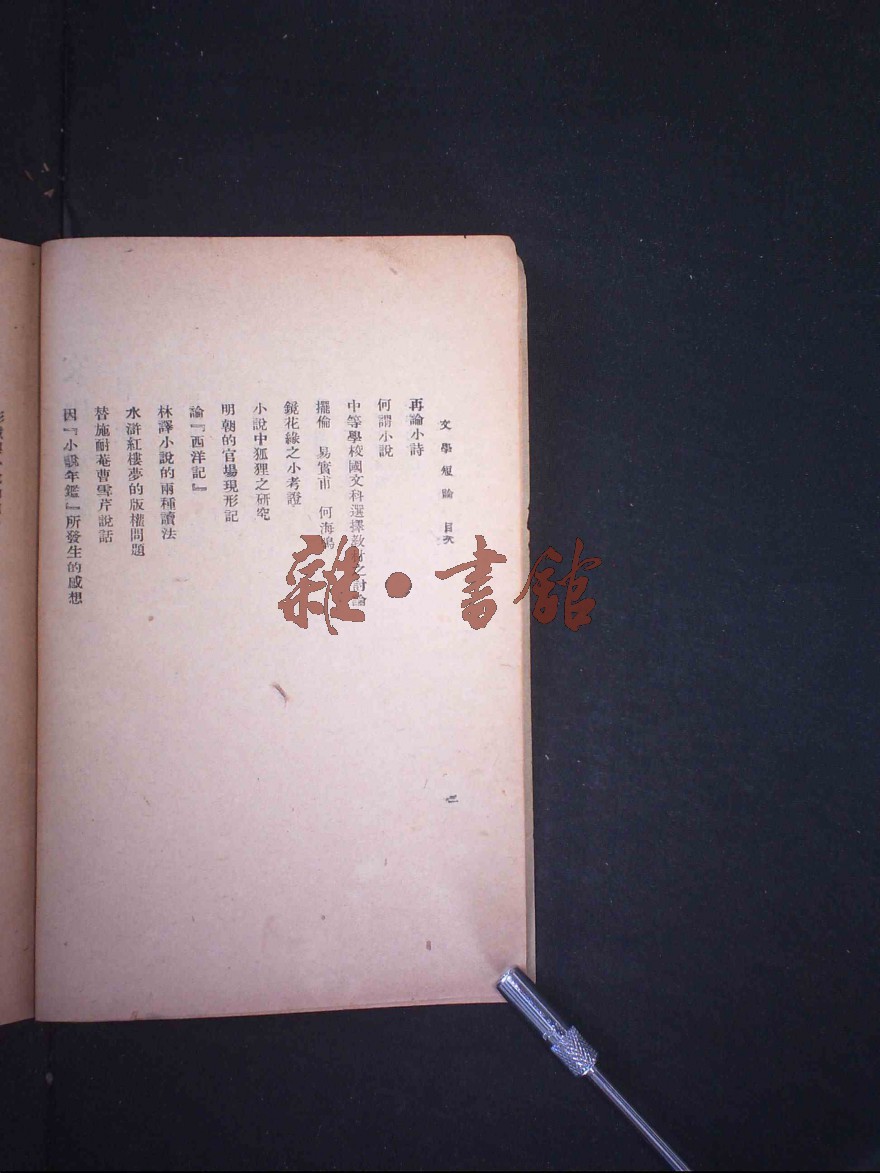 文學短論 目次
二
再論小詩
何謂小說
中等學校國文科選擇教材之討論
擺倫 易實甫 何海鳴
鏡花緣之小考證
小說中狐狸之研究
明朝的官場現形記
論『西洋記』
林譯小說的兩種讀法
水滸紅樓夢的版權問題
替施耐菴曹雪芹說話
因『小說年鑑』所發生的感想
雜·書館